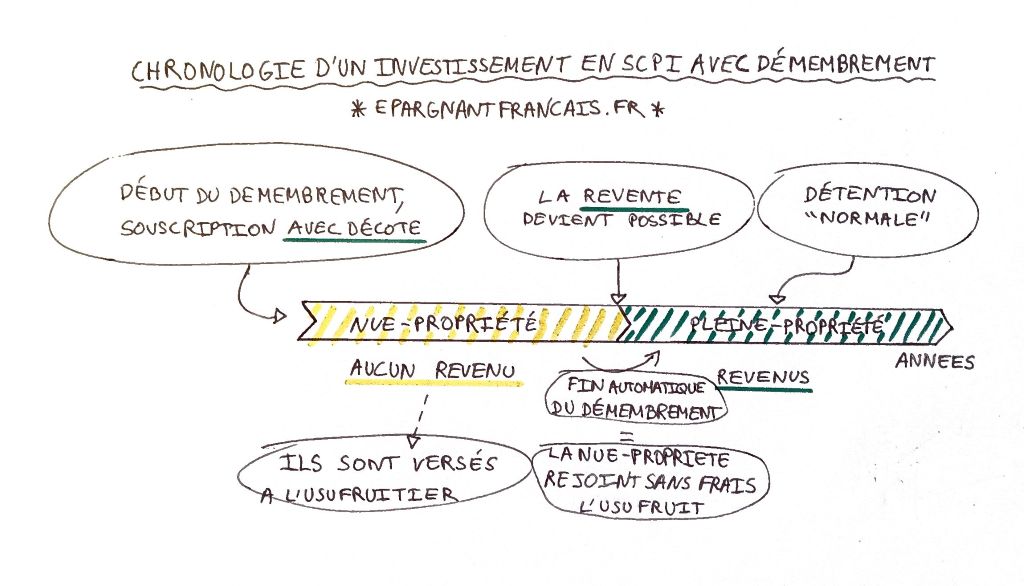 CHRONOLOGIE D'UN INVESTISSEMENT EN SCPI AVEC DÉMEMBREMENT
* EPARGNANTFRANCAIS.FR *
DÉBUT DU DEMEMBREMENT,
SOUSCRIPTION AVEC DÉCOTE
LA REVENTE
DEVIENT POSSIBLE
DÉTENTION
"NORMALE"
NUE-PROPRIÉTÉ
PLEINE-PROPRIÉTÉ
ANNEES
AUCUN REVENU
REVENUS
FIN AUTOMATIQUE
DU DÉMEMBREMENT
=
ILS SONT VERSÉS
A L'USUFRUITIER
LA NUE-PROPRIETE
REJOINT SANS FRAIS
L'USUFRUIT